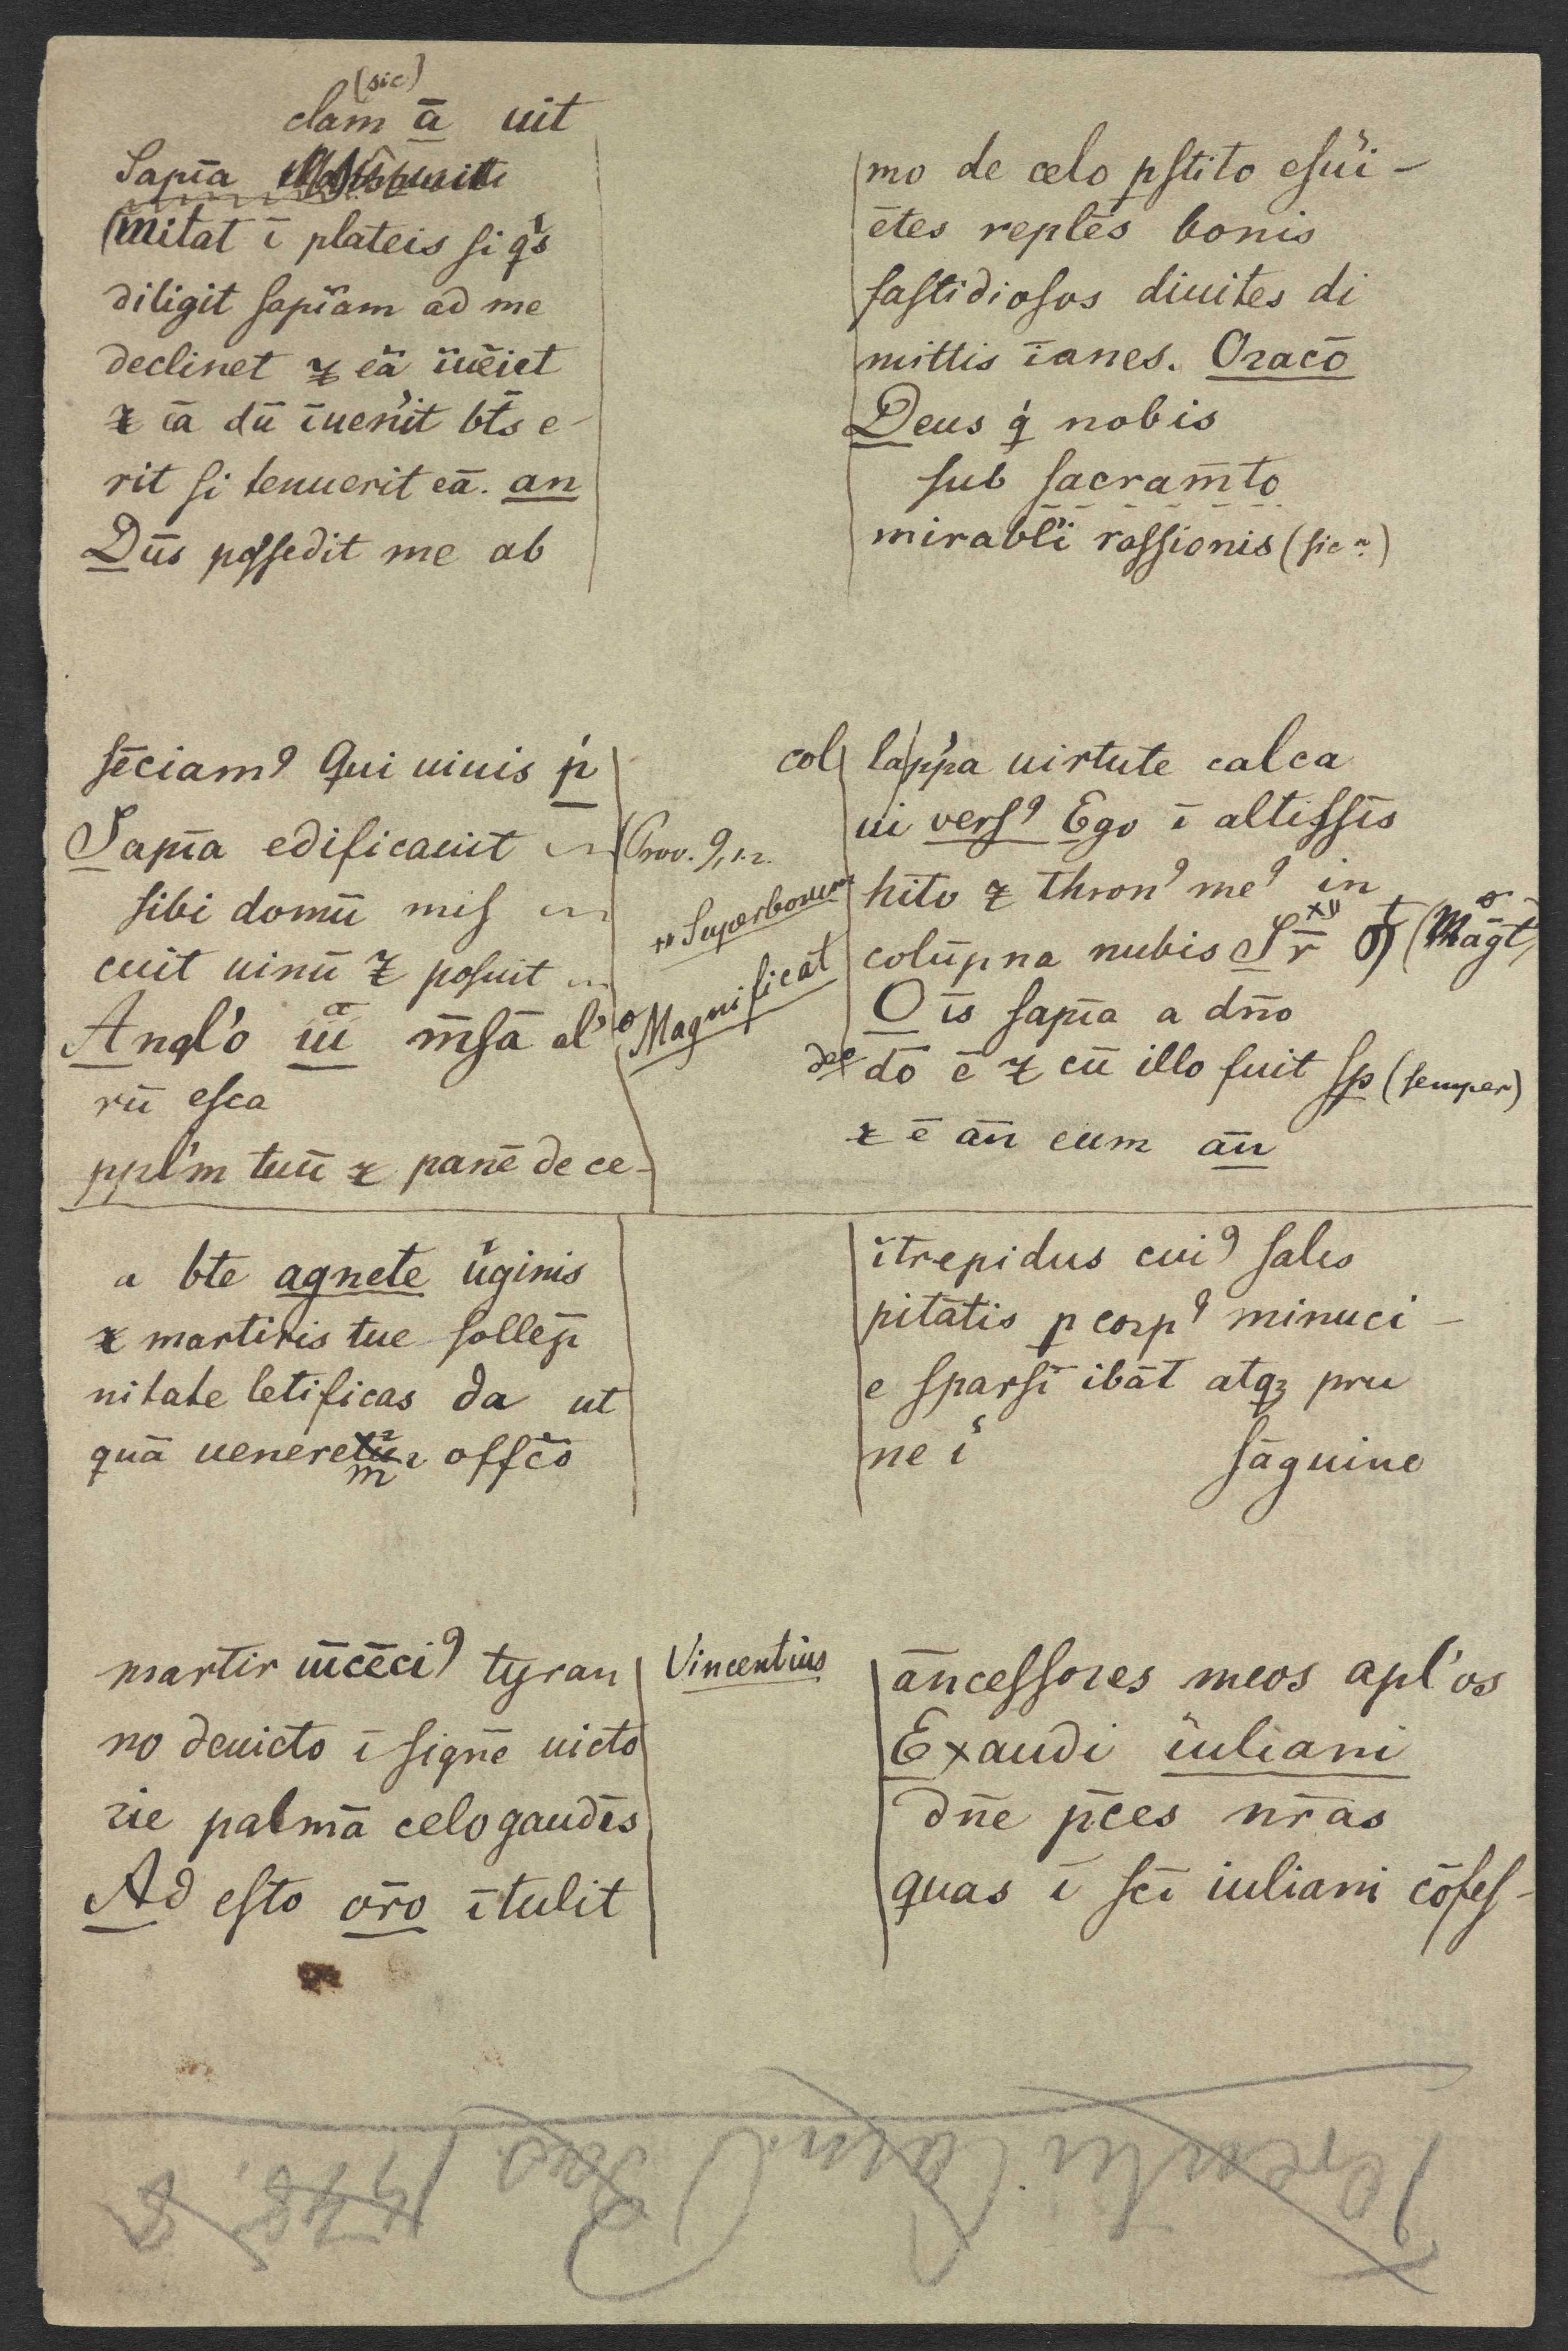 (sic)
clam ā uit
Sapīa
mitat ī plateis si qͥs
diligit sapīam ad me
declinet ⁊ eā īuēiet
⁊ īa dū īuen̉it bt̄s e-
rit si tenuerit eā. an
Dūs possedit me ab
mo de celo pstito esūi-
ētes reples bonis
fastidiosos diuites di
mittis īanes. Oracō
Deus qͥ nobis
sub sacram̄to
mirabl̉i rassionis (sic ~)
sēciamꝰ Qui uiuis p̉
Sapīa edificauit
sibi domū mis
cuit uinū ⁊ posuit
Angl'o ūi m̄sā al'
rū esca
ppl'm tuū ⁊ panē de ce-
Prov. 9, 1.2.
Superbonum
Magnificat
col lap̉pa uirtute calca
ui versꝰ Ego ī altissīs
hito ⁊ thronꝰ meꝰ in
colūpna nubis S r̄ xv (Māgt)
O īs sapīa a dn̄o
deo dō ē ⁊ cū illo fuit sp (semper)
⁊ ē ān eum ān
a bte agnete ūginis
⁊ martiris tue sollēp
nitate letificas da ut
quā uenere m r offc̄o
ītrepidus cuiꝰ sales
pitātis p corpꝰ minuci-
e sparsī ibāt atqꝫ pru
ne ī sāguine
martir uīcēciꝰ tyran
no deuicto ī signē uicto
rie palmā celo gaudēs
Ad esto ōro ītulit
Vincentius
āncessores meos apl'os
Exaudi iuliani
dn̄e p̄ces nr̄as
quas ī scī iuliani cōfes-
Terentii Com. Paris 1478, 8